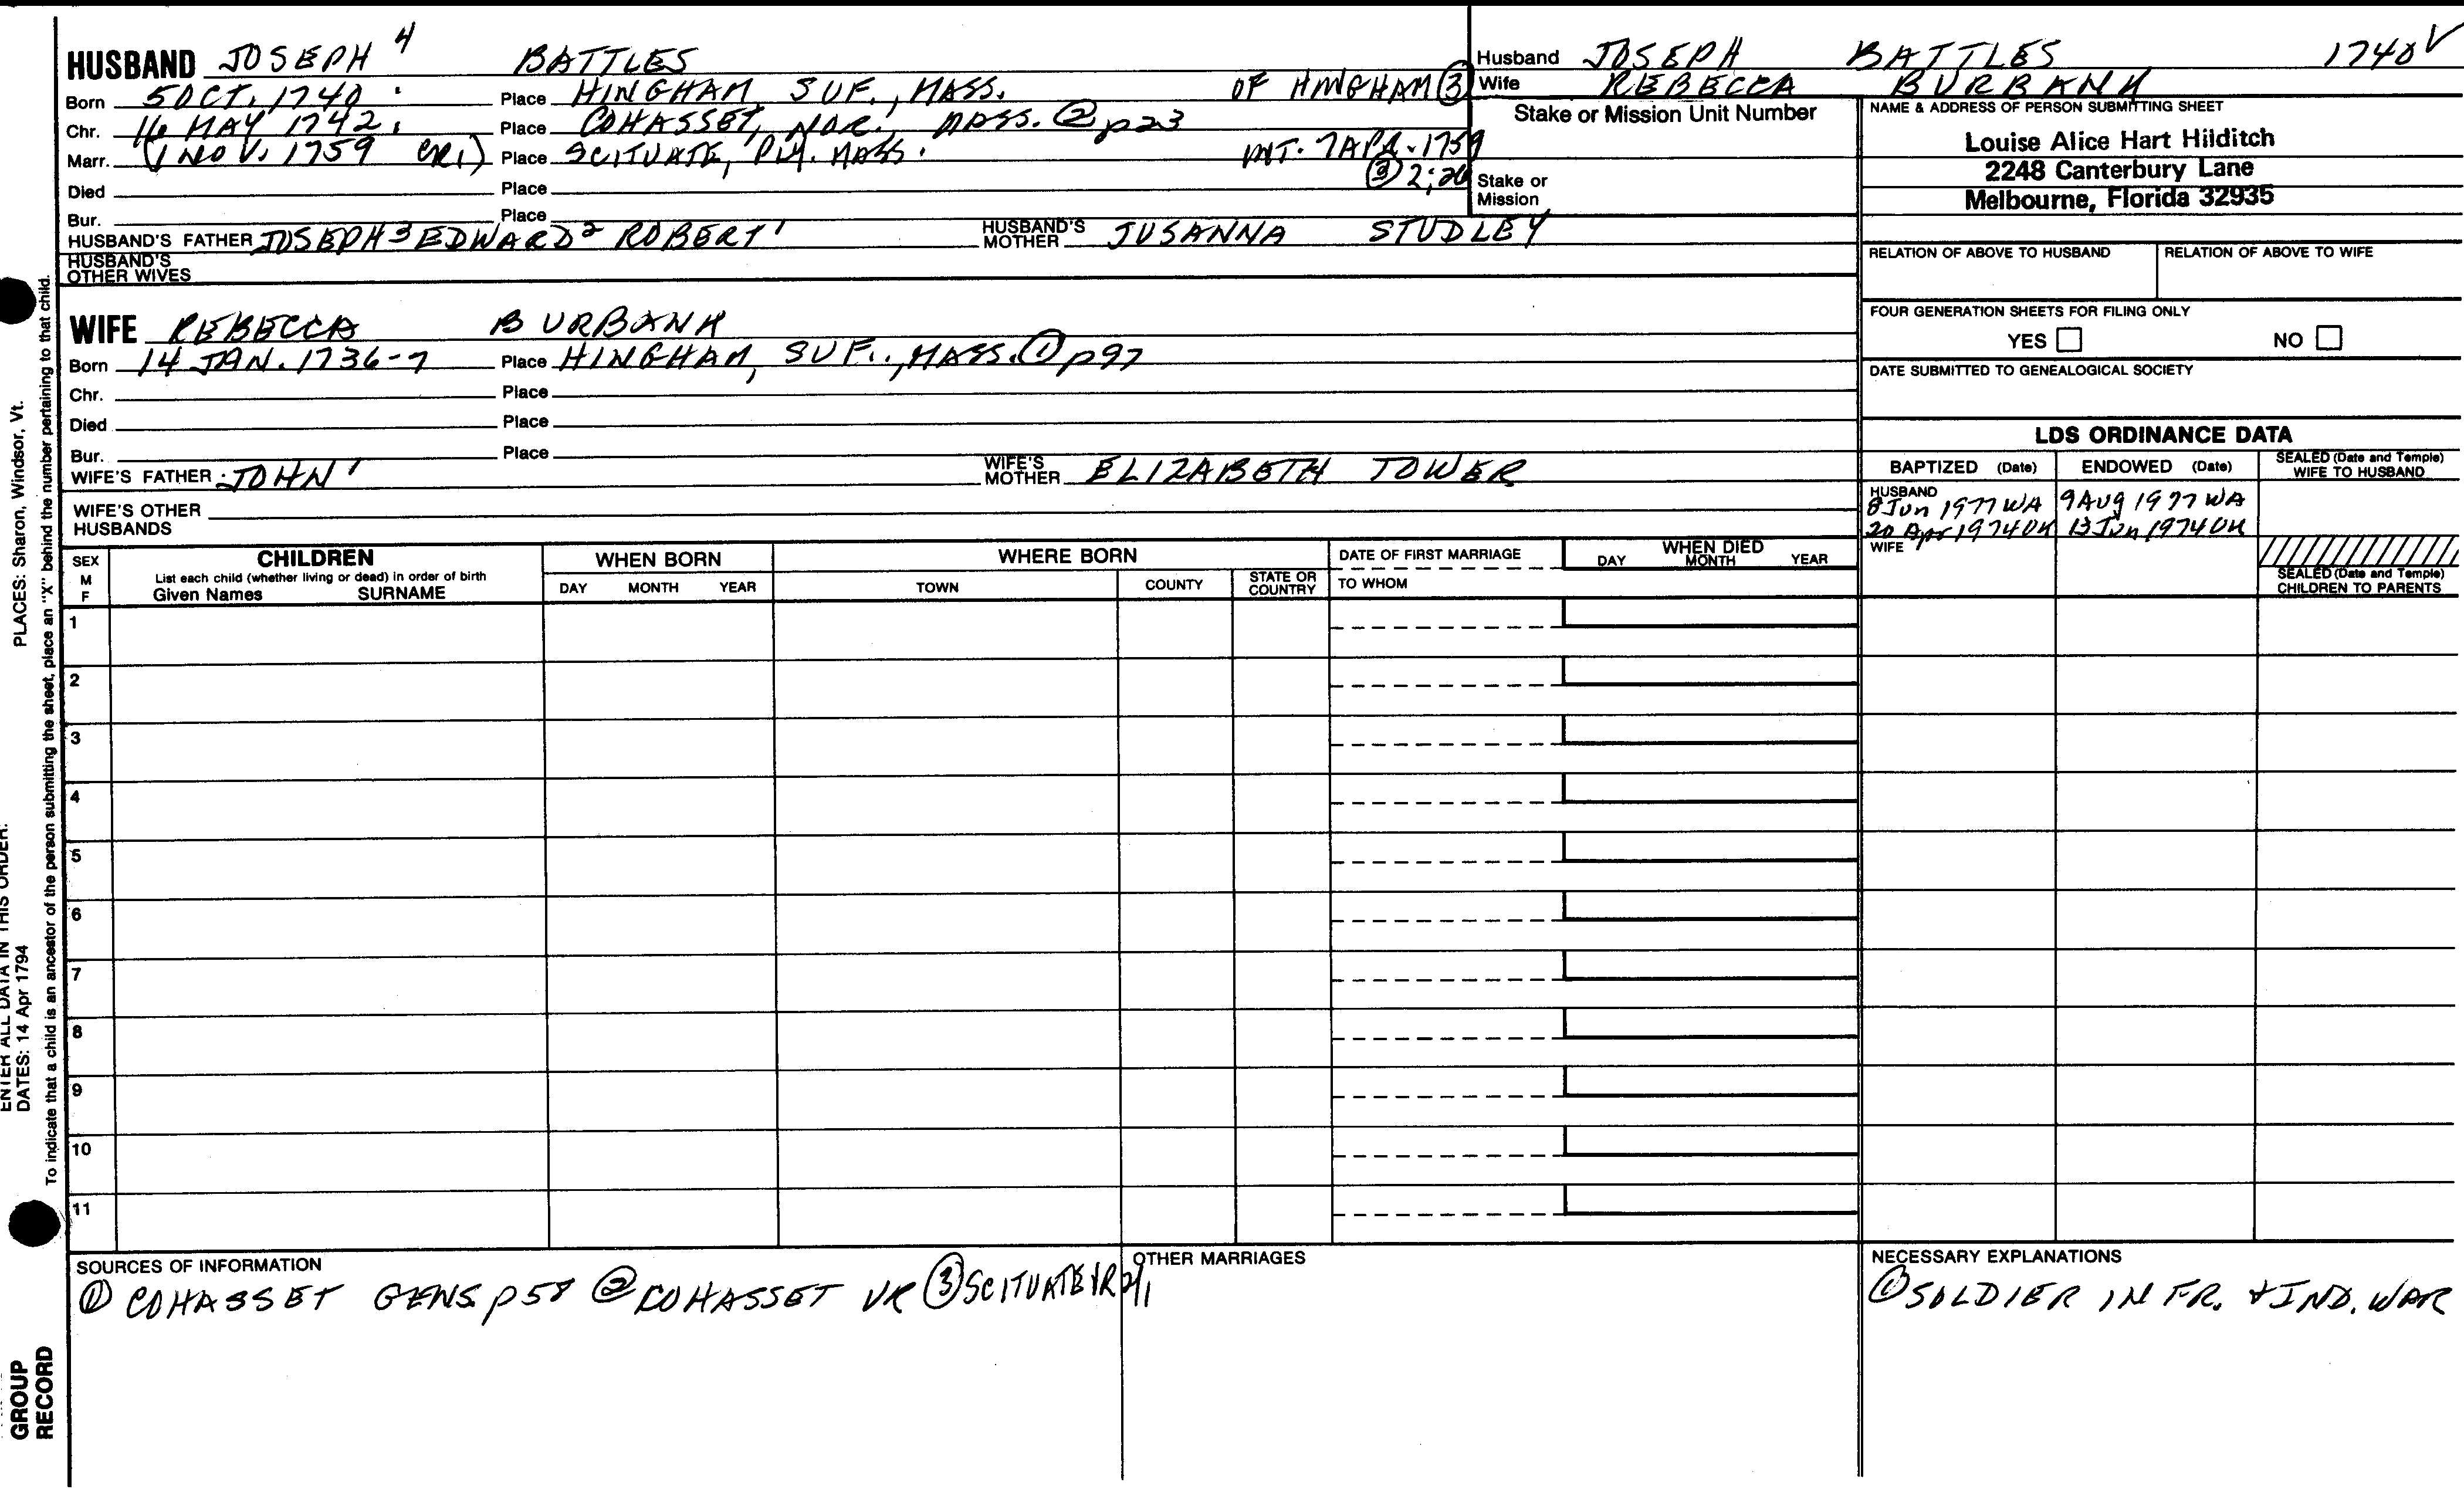 HUSBAND JOSEPH 4 BATTLES
Born 5 OCT. 1740 Place HINGHAM, SUF., MASS. OF HINGHAM ③
Chr. 16 MAY 1742 Place COHASSET, NOR., MASS. ② p23
Marr. (1 NOV. 1759 CR1) Place SCITUATE, PLY. MASS. INT. 7 APR. 1759
③ 2:26
Died Place
Bur. Place
HUSBAND'S FATHER JOSEPH 3 EDWARD 2 ROBERT 1 HUSBAND'S MOTHER SUSANNA STUDLEY
HUSBAND'S OTHER WIVES
Husband JOSEPH BATTLES 1740 V
Wife REBECCA BURBANK
Stake or Mission Unit Number
Stake or Mission
NAME & ADDRESS OF PERSON SUBMITTING SHEET
Louise Alice Hart Hilditch
2248 Canterbury Lane
Melbourne, Florida 32935
RELATION OF ABOVE TO HUSBAND RELATION OF ABOVE TO WIFE
FOUR GENERATION SHEETS FOR FILING ONLY
YES NO
DATE SUBMITTED TO GENEALOGICAL SOCIETY
WIFE REBECCA BURBANK
Born 14 JAN. 1736-7 Place HINGHAM, SUF., MASS. ① p97
Chr. Place
Died Place
Bur. Place
WIFE'S FATHER JOHN 1 WIFE'S MOTHER ELIZABETH TOWER
WIFE'S OTHER HUSBANDS
LDS ORDINANCE DATA
BAPTIZED (Date) ENDOWED (Date) SEALED (Date and Temple) WIFE TO HUSBAND
HUSBAND
8 Jun 1977 WA 9 Aug 1977 WA
20 Apr 1974 OK 13 Jun 1974 OK
WIFE
SEALED (Date and Temple)
CHILDREN TO PARENTS
SEX M F CHILDREN WHEN BORN WHERE BORN DATE OF FIRST MARRIAGE WHEN DIED
List each child (whether living or dead) in order of birth
Given Names SURNAME DAY MONTH YEAR TOWN COUNTY STATE OR COUNTRY TO WHOM DAY MONTH YEAR
1
2
3
4
5
6
7
8
9
10
11
SOURCES OF INFORMATION
① COHASSET GENS. p58 ② COHASSET VR ③ SCITUATE VR
OTHER MARRIAGES
NECESSARY EXPLANATIONS
① SOLDIER IN FR. + IND. WAR
PLACES: Sharon, Windsor, Vt.
ENTER ALL DATA IN THIS ORDER:
DATES: 14 Apr 1794
To indicate that a child is an ancestor of the person submitting the sheet, place an "X" behind the number pertaining to that child.
GROUP
RECORD